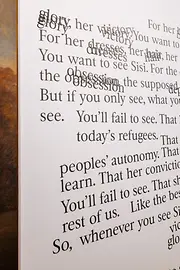 glory, her victory. For her g
glory victory You want to
For her dresses, her hair, her
dresses hair
You want to see Sisi. For the
obsession
the obsession, the supposed
obsession
But if you only see, what you
see. You'll fail to see. That
today's refugees.
peoples' autonomy. That
learn. That her convictio
You'll fail to see. That sh
rest of us. Like the bes
So, whenever you see Si
vic
glo